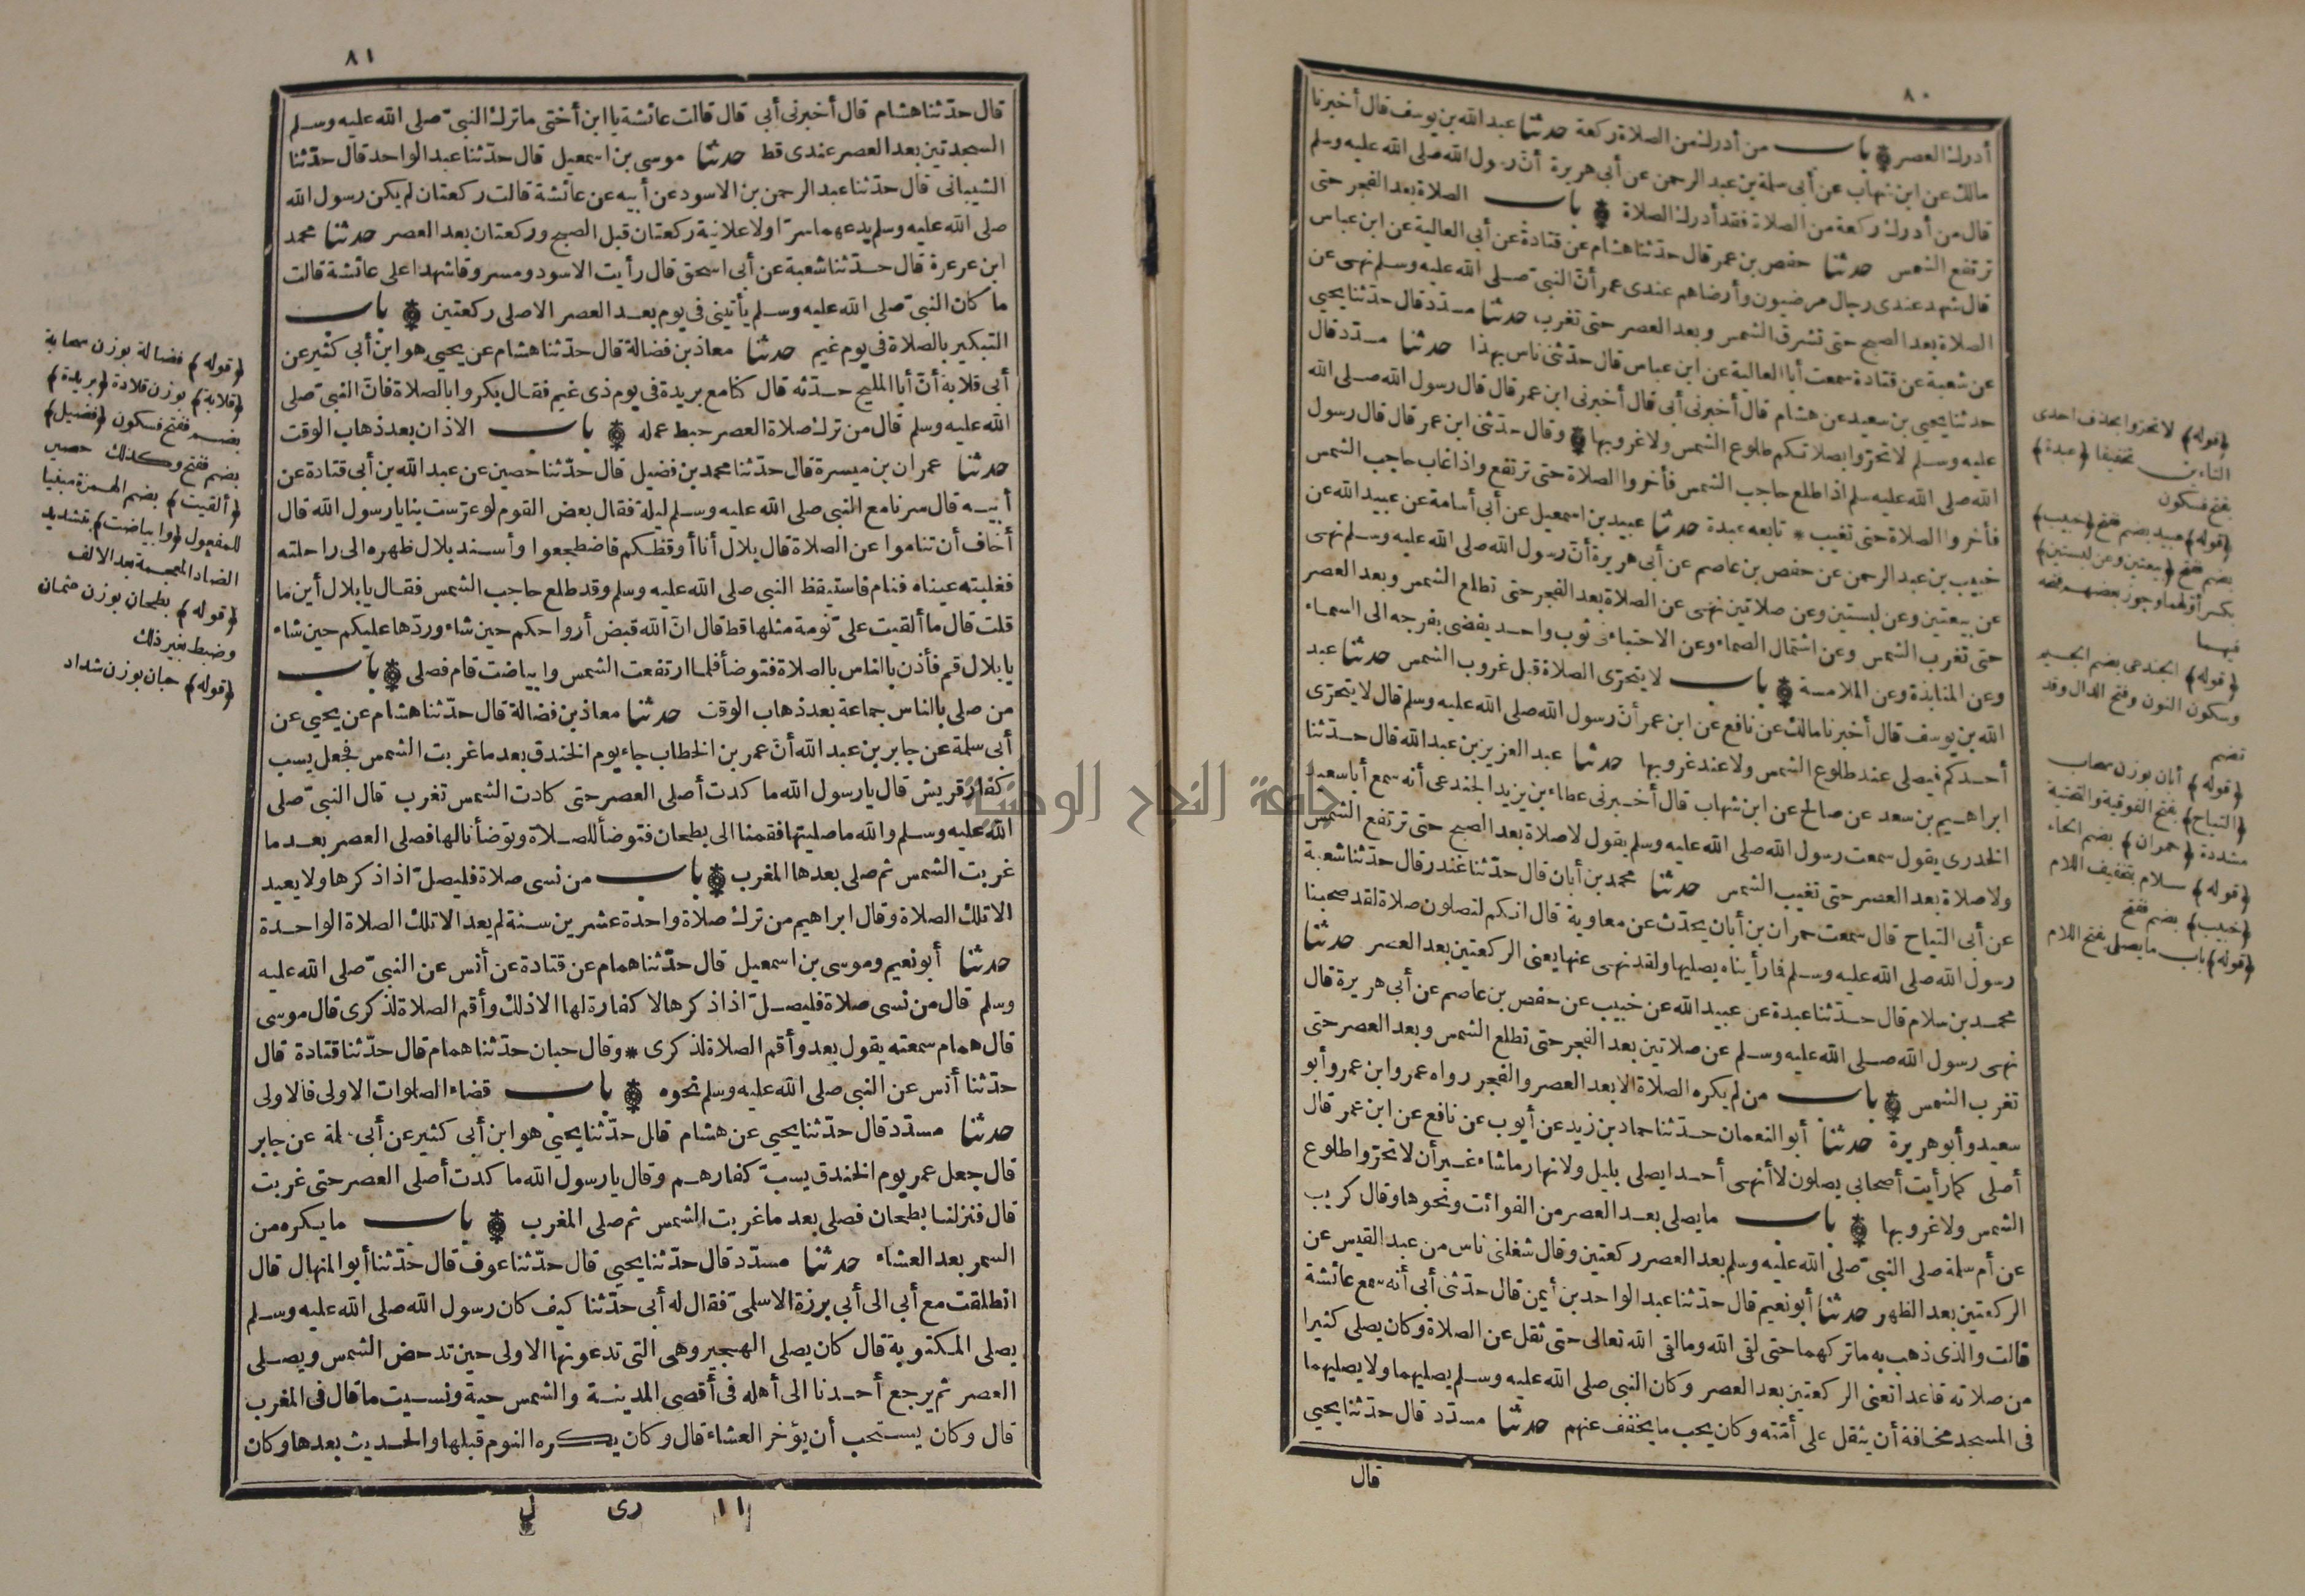 ٨٠
أدرك العصر باب من أدرك من الصلاة ركعة حدثنا عبد الله بن يوسف قال أخبرنا
مالك عن ابن شهاب عن أبى سلمة بن عبد الرحمن عن أبى هريرة أن رسول الله صلى الله عليه وسلم
قال من أدرك ركعة من الصلاة فقد أدرك الصلاة باب الصلاة بعد الفجر حتى
ترتفع الشمس حدثنا حفص بن عمر قال حدثنا هشام عن قتادة عن أبى العالية عن ابن عباس
قال شهد عندى رجال مرضيون وأرضاهم عندى عمر أن النبى صلى الله عليه وسلم نهى عن
الصلاة بعد الصبح حتى تشرق الشمس وبعد العصر حتى تغرب حدثنا مسدد قال حدثنا يحيى
عن شعبة عن قتادة سمعت أبا العالية عن ابن عباس قال حدثنى ناس بهذا حدثنا مسدد قال
حدثنا يحيى بن سعيد عن هشام قال أخبرنى أبى قال أخبرنى ابن عمر قال قال رسول الله صلى الله
عليه وسلم لا تحروا بصلاتكم طلوع الشمس ولا غروبها وقال حدثنى ابن عمر قال قال رسول
الله صلى الله عليه وسلم اذا طلع حاجب الشمس فأخروا الصلاة حتى ترتفع واذا غاب حاجب الشمس
فأخروا الصلاة حتى تغيب * تابعه عبدة حدثنا عبيد بن اسمعيل عن أبى أسامة عن عبيد الله عن
خبيب بن عبد الرحمن عن حفص بن عاصم عن أبى هريرة أن رسول الله صلى الله عليه وسلم نهى
عن بيعتين وعن لبستين وعن صلاتين نهى عن الصلاة بعد الفجر حتى تطلع الشمس وبعد العصر
حتى تغرب الشمس وعن اشتمال الصماء وعن الاحتباء فى ثوب واحد يفضى بفرجه الى السماء
وعن المنابذة وعن الملامسة باب لا يتحرى الصلاة قبل غروب الشمس حدثنا عبد
الله بن يوسف قال أخبرنا مالك عن نافع عن ابن عمر أن رسول الله صلى الله عليه وسلم قال لا يتحرى
أحدكم فيصلى عند طلوع الشمس ولا عند غروبها حدثنا عبد العزيز بن عبد الله قال حدثنا
ابراهيم بن سعد عن صالح عن ابن شهاب قال أخبرنى عطاء بن يزيد الجندعى أنه سمع أبا سعيد
الخدرى يقول سمعت رسول الله صلى الله عليه وسلم يقول لا صلاة بعد الصبح حتى ترتفع الشمس
ولا صلاة بعد العصر حتى تغيب الشمس حدثنا محمد بن أبان قال حدثنا غندر قال حدثنا شعبة
عن أبى التياح قال سمعت حمران بن أبان يحدث عن معاوية قال انكم لتصلون صلاة لقد صحبنا
رسول الله صلى الله عليه وسلم فما رأيناه يصليها ولقد نهى عنها يعنى الركعتين بعد العصر حدثنا
محمد بن سلام قال حدثنا عبدة عن عبيد الله عن خبيب عن حفص بن عاصم عن أبى هريرة قال
نهى رسول الله صلى الله عليه وسلم عن صلاتين بعد الفجر حتى تطلع الشمس وبعد العصر حتى
تغرب الشمس باب من لم يكره الصلاة الا بعد العصر والفجر رواه عمر وابن عمر وأبو
سعيد وأبو هريرة حدثنا أبو النعمان حدثنا حماد بن زيد عن أيوب عن نافع عن ابن عمر قال
أصلى كما رأيت أصحابى يصلون لا أنهى أحدا يصلى بليل ولا نهار ما شاء غير أن لا تحروا طلوع
الشمس ولا غروبها باب ما يصلى بعد العصر من الفوائت ونحوها وقال كريب
عن أم سلمة صلى النبى صلى الله عليه وسلم بعد العصر ركعتين وقال شغلنى ناس من عبد القيس عن
الركعتين بعد الظهر حدثنا أبو نعيم قال حدثنا عبد الواحد بن أيمن قال حدثنى أبى أنه سمع عائشة
قالت والذى ذهب به ما تركهما حتى لقى الله وما لقى الله تعالى حتى ثقل عن الصلاة وكان يصلى كثيرا
من صلاته قاعدا تعنى الركعتين بعد العصر وكان النبى صلى الله عليه وسلم يصليهما ولا يصليهما
فى المسجد مخافة أن يثقل على أمته وكان يحب ما يخفف عنهم حدثنا مسدد قال حدثنا يحيى
قال
﴿قوله﴾ لا تحروا بحذف احدى
التاءين تخفيفا ﴿عبدة﴾
بفتح فسكون
﴿قوله﴾ عبيد بضم ففتح ﴿خبيب﴾
بضم ففتح ﴿بيعتين وعن لبستين﴾
بكسر أولهما وجوز بعضهم فتحه
فيهما
﴿قوله﴾ الجندعى بضم الجيم
وسكون النون وفتح الدال وقد
تضم
﴿قوله﴾ أبان بوزن سحاب
﴿التياح﴾ بفتح الفوقية والتحتية
مشددة ﴿حمران﴾ بضم الحاء
﴿قوله﴾ سلام بتخفيف اللام
﴿خبيب﴾ بضم ففتح
﴿قوله﴾ باب ما يصلى بفتح اللام
٨١
قال حدثنا هشام قال أخبرنى أبى قال قالت عائشة يا ابن أختى ما ترك النبى صلى الله عليه وسلم
السجدتين بعد العصر عندى قط حدثنا موسى بن اسمعيل قال حدثنا عبد الواحد قال حدثنا
الشيبانى قال حدثنا عبد الرحمن بن الاسود عن أبيه عن عائشة قالت ركعتان لم يكن رسول الله
صلى الله عليه وسلم يدعهما سرا ولا علانية ركعتان قبل الصبح وركعتان بعد العصر حدثنا محمد
ابن عرعرة قال حدثنا شعبة عن أبى اسحق قال رأيت الاسود ومسروقا شهدا على عائشة قالت
ما كان النبى صلى الله عليه وسلم يأتينى فى يوم بعد العصر الا صلى ركعتين باب
التبكير بالصلاة فى يوم غيم حدثنا معاذ بن فضالة قال حدثنا هشام عن يحيى هو ابن أبى كثير عن
أبى قلابة أن أبا المليح حدثه قال كنا مع بريدة فى يوم ذى غيم فقال بكروا بالصلاة فان النبى صلى
الله عليه وسلم قال من ترك صلاة العصر حبط عمله باب الاذان بعد ذهاب الوقت
حدثنا عمران بن ميسرة قال حدثنا محمد بن فضيل قال حدثنا حصين عن عبد الله بن أبى قتادة عن
أبيه قال سرنا مع النبى صلى الله عليه وسلم ليلة فقال بعض القوم لو عرست بنا يا رسول الله قال
أخاف أن تناموا عن الصلاة قال بلال أنا أوقظكم فاضطجعوا وأسند بلال ظهره الى راحلته
فغلبته عيناه فنام فاستيقظ النبى صلى الله عليه وسلم وقد طلع حاجب الشمس فقال يا بلال أين ما
قلت قال ما ألقيت على نومة مثلها قط قال ان الله قبض أرواحكم حين شاء وردها عليكم حين شاء
يا بلال قم فأذن بالناس بالصلاة فتوضأ فلما ارتفعت الشمس وابياضت قام فصلى باب
من صلى بالناس جماعة بعد ذهاب الوقت حدثنا معاذ بن فضالة قال حدثنا هشام عن يحيى عن
أبى سلمة عن جابر بن عبد الله أن عمر بن الخطاب جاء يوم الخندق بعد ما غربت الشمس فجعل يسب
كفار قريش قال يا رسول الله ما كدت أصلى العصر حتى كادت الشمس تغرب قال النبى صلى
الله عليه وسلم والله ما صليتها فقمنا الى بطحان فتوضأ للصلاة وتوضأنا لها فصلى العصر بعد ما
غربت الشمس ثم صلى بعدها المغرب باب من نسى صلاة فليصل اذا ذكرها ولا يعيد
الا تلك الصلاة وقال ابراهيم من ترك صلاة واحدة عشرين سنة لم يعد الا تلك الصلاة الواحدة
حدثنا أبو نعيم وموسى بن اسمعيل قال حدثنا همام عن قتادة عن أنس عن النبى صلى الله عليه
وسلم قال من نسى صلاة فليصل اذا ذكرها لا كفارة لها الا ذلك وأقم الصلاة لذكرى قال موسى
قال همام سمعته يقول بعد وأقم الصلاة لذكرى * وقال حبان حدثنا همام قال حدثنا قتادة قال
حدثنا أنس عن النبى صلى الله عليه وسلم نحوه باب قضاء الصلوات الاولى فالاولى
حدثنا مسدد قال حدثنا يحيى عن هشام قال حدثنا يحيى هو ابن أبى كثير عن أبى سلمة عن جابر
قال جعل عمر يوم الخندق يسب كفارهم وقال يا رسول الله ما كدت أصلى العصر حتى غربت
قال فنزلنا بطحان فصلى بعد ما غربت الشمس ثم صلى المغرب باب ما يكره من
السمر بعد العشاء حدثنا مسدد قال حدثنا يحيى قال حدثنا عوف قال حدثنا أبو المنهال قال
انطلقت مع أبى الى أبى برزة الاسلمى فقال له أبى حدثنا كيف كان رسول الله صلى الله عليه وسلم
يصلى المكتوبة قال كان يصلى الهجير وهى التى تدعونها الاولى حين تدحض الشمس ويصلى
العصر ثم يرجع أحدنا الى أهله فى أقصى المدينة والشمس حية ونسيت ما قال فى المغرب
قال وكان يستحب أن يؤخر العشاء قال وكان يكره النوم قبلها والحديث بعدها وكان
١١ رى ل
﴿قوله﴾ فضالة بوزن سحابة
﴿قلابة﴾ بوزن قلادة ﴿بريدة﴾
بضم ففتح فسكون ﴿فضيل﴾
بضم ففتح وكذلك حصين
﴿ألقيت﴾ بضم الهمزة مبنيا
للمفعول ﴿وابياضت﴾ بتشديد
الضاد المعجمة بعد الالف
﴿قوله﴾ بطحان بوزن عثمان
وضبط بغير ذلك
﴿قوله﴾ حبان بوزن شداد
جامعة النجاح الوطنية